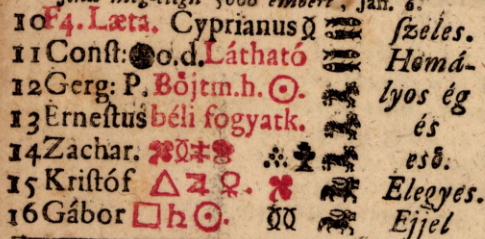 Jan. 6.
10 F4. Læta. Cyprianus ☿ ſzeles.
11 Conſt: ● o.d. Látható Homá-
12 Gerg: P. Böjtm.h. ☉. lyos ég
13 Erneſtus béli fogyatk. és
14 Zachar. eső.
15 Kriſtóf △ ♃ ♀. Elegyes.
16 Gábor □ ♄ ☉. Ejjel